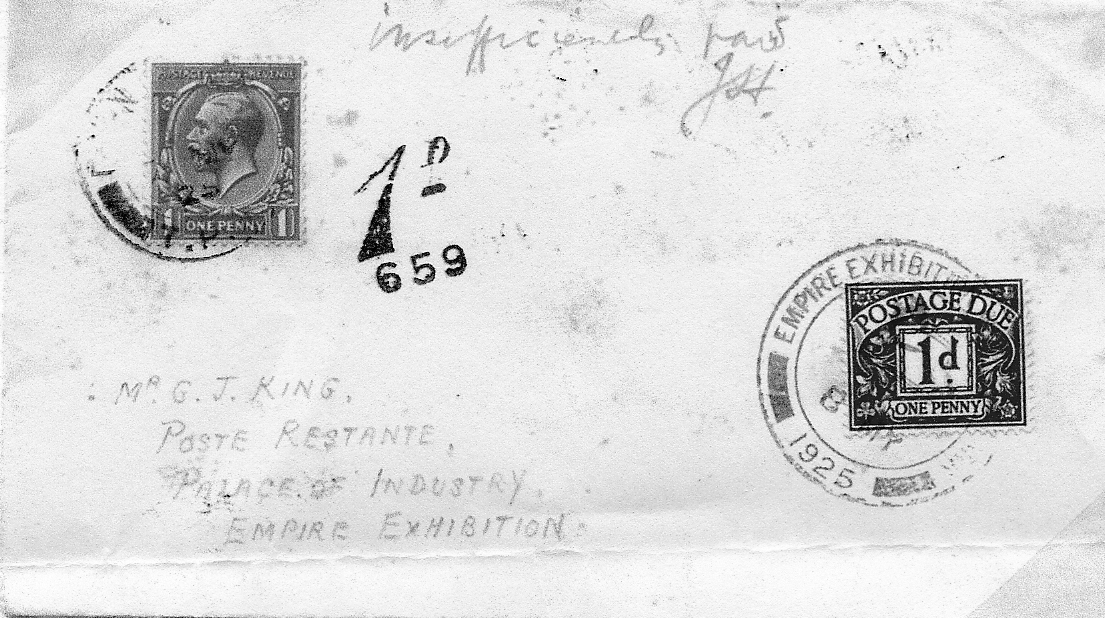 insufficiently paid
JH.
POSTAGE REVENUE
1 ONE PENNY 1
1D
659
EMPIRE EXHIBITI
1925
POSTAGE DUE
1d.
ONE PENNY
MR. G. J. KING,
POSTE RESTANTE,
PALACE OF INDUSTRY,
EMPIRE EXHIBITION.